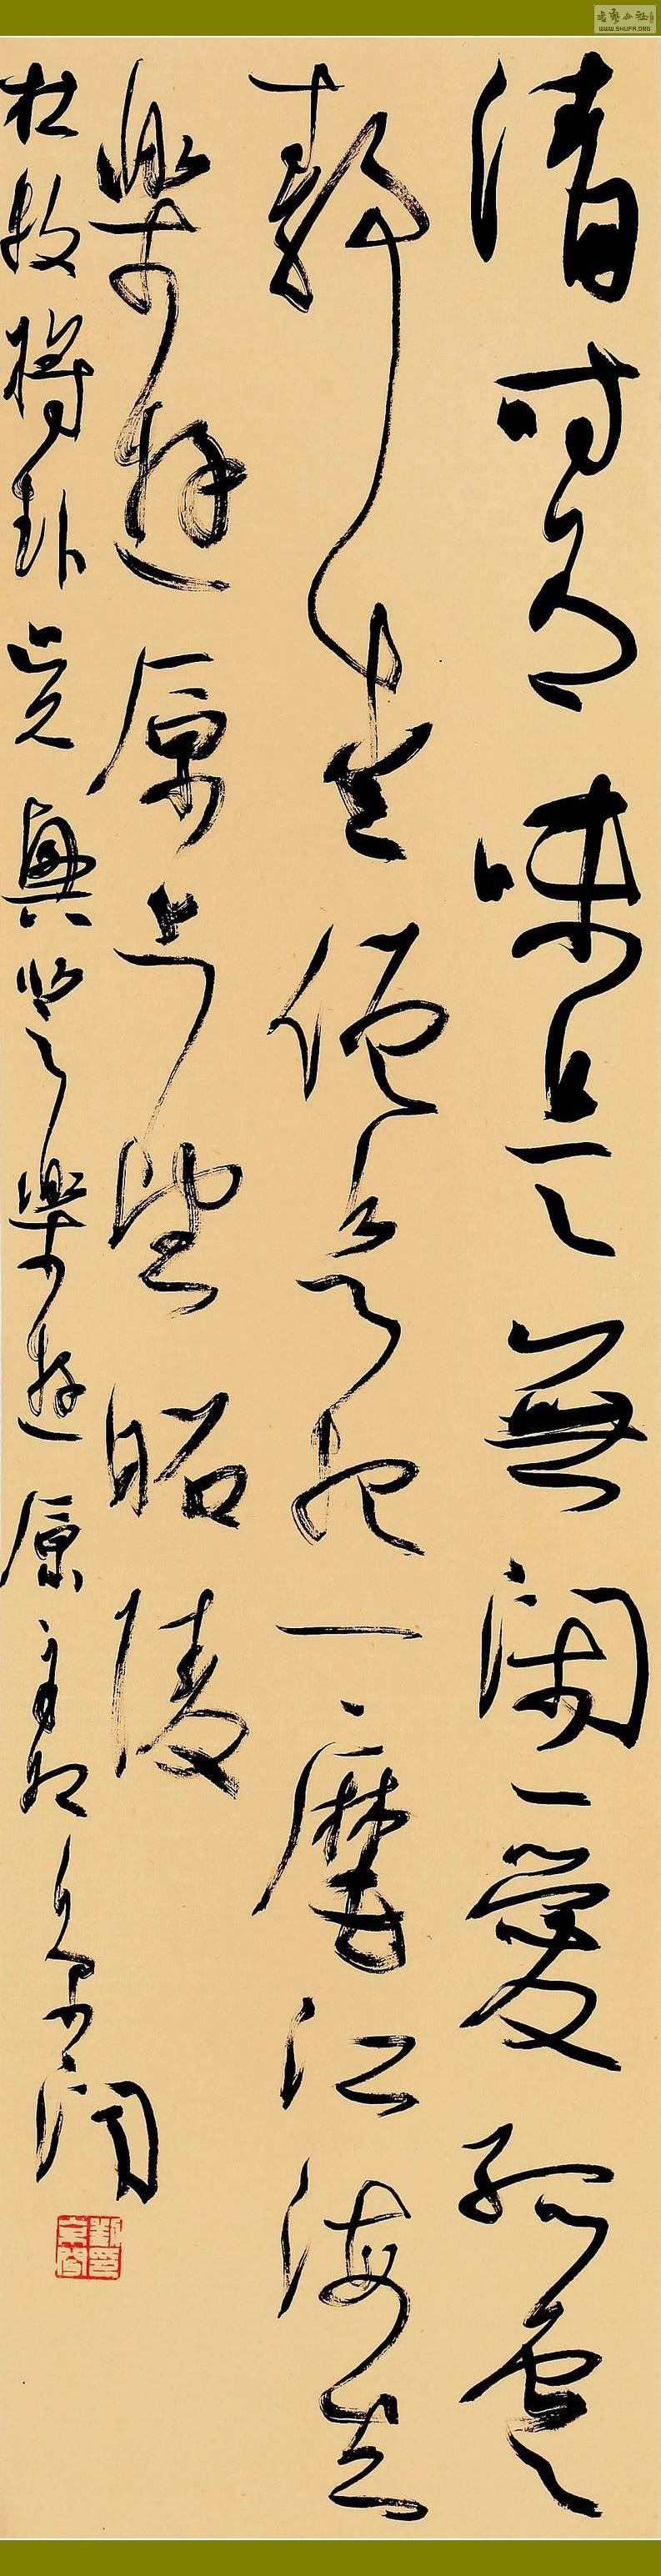 清時有味是無能閑愛孤雲
靜愛僧欲把一麾江海去
樂遊原上望昭陵
杜牧將赴吳興登樂遊原一絕 京閘
WWW.SHUFA.ORG